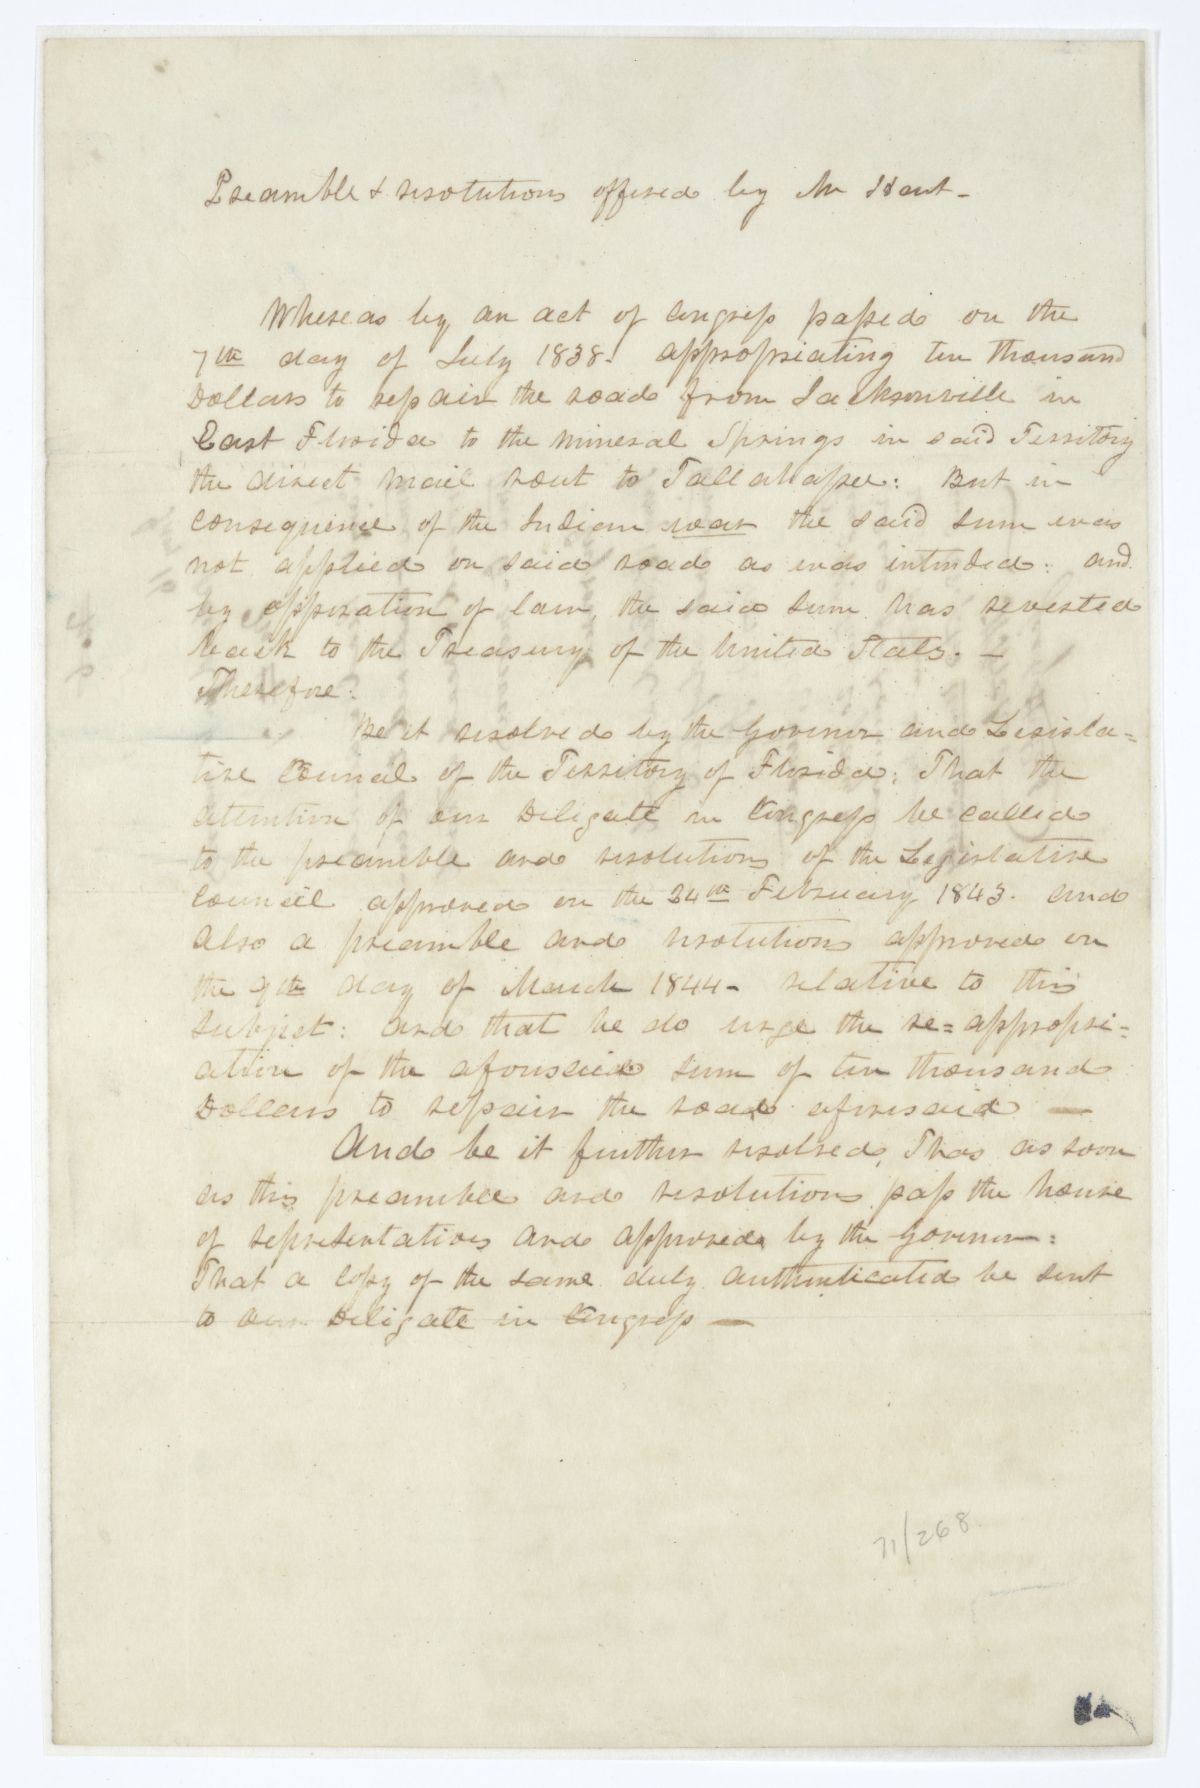 Preamble & resolutions offered by Mr Hart -
Whereas by an act of Congress passed on the
7th day of July 1838. appropriating ten thousand
Dollars to repair the road from Jacksonville in
East Florida to the mineral Springs in said Territory
the direct mail rout to Tallahassee: But in
consequence of the Indian war the said sum was
not applied on said road as was intended: and
by opperation of law, the said sum has reverted
back to the Treasury of the United States. -
Therefore.
Be it resolved by the Governor and Legisla=
tive Council of the Territory of Florida; That the
attention of our Deligate in Congress be called
to the preamble and resolutions of the Legislative
Council approved on the 24th February 1843. and
also a preamble and resolutions approved on
the 9th day of March 1844 - relative to this
subject: and that he do urge the re=appropri=
ation of the aforesaid sum of ten thousand
Dollars to repair the road aforesaid —
And be it further resolved, Thas as soon
as this preamble and resolutions pass the house
of representatives and approved by the Governor:
That a copy of the same duly authenticated be sent
to our Deligate in Congress —
71/268